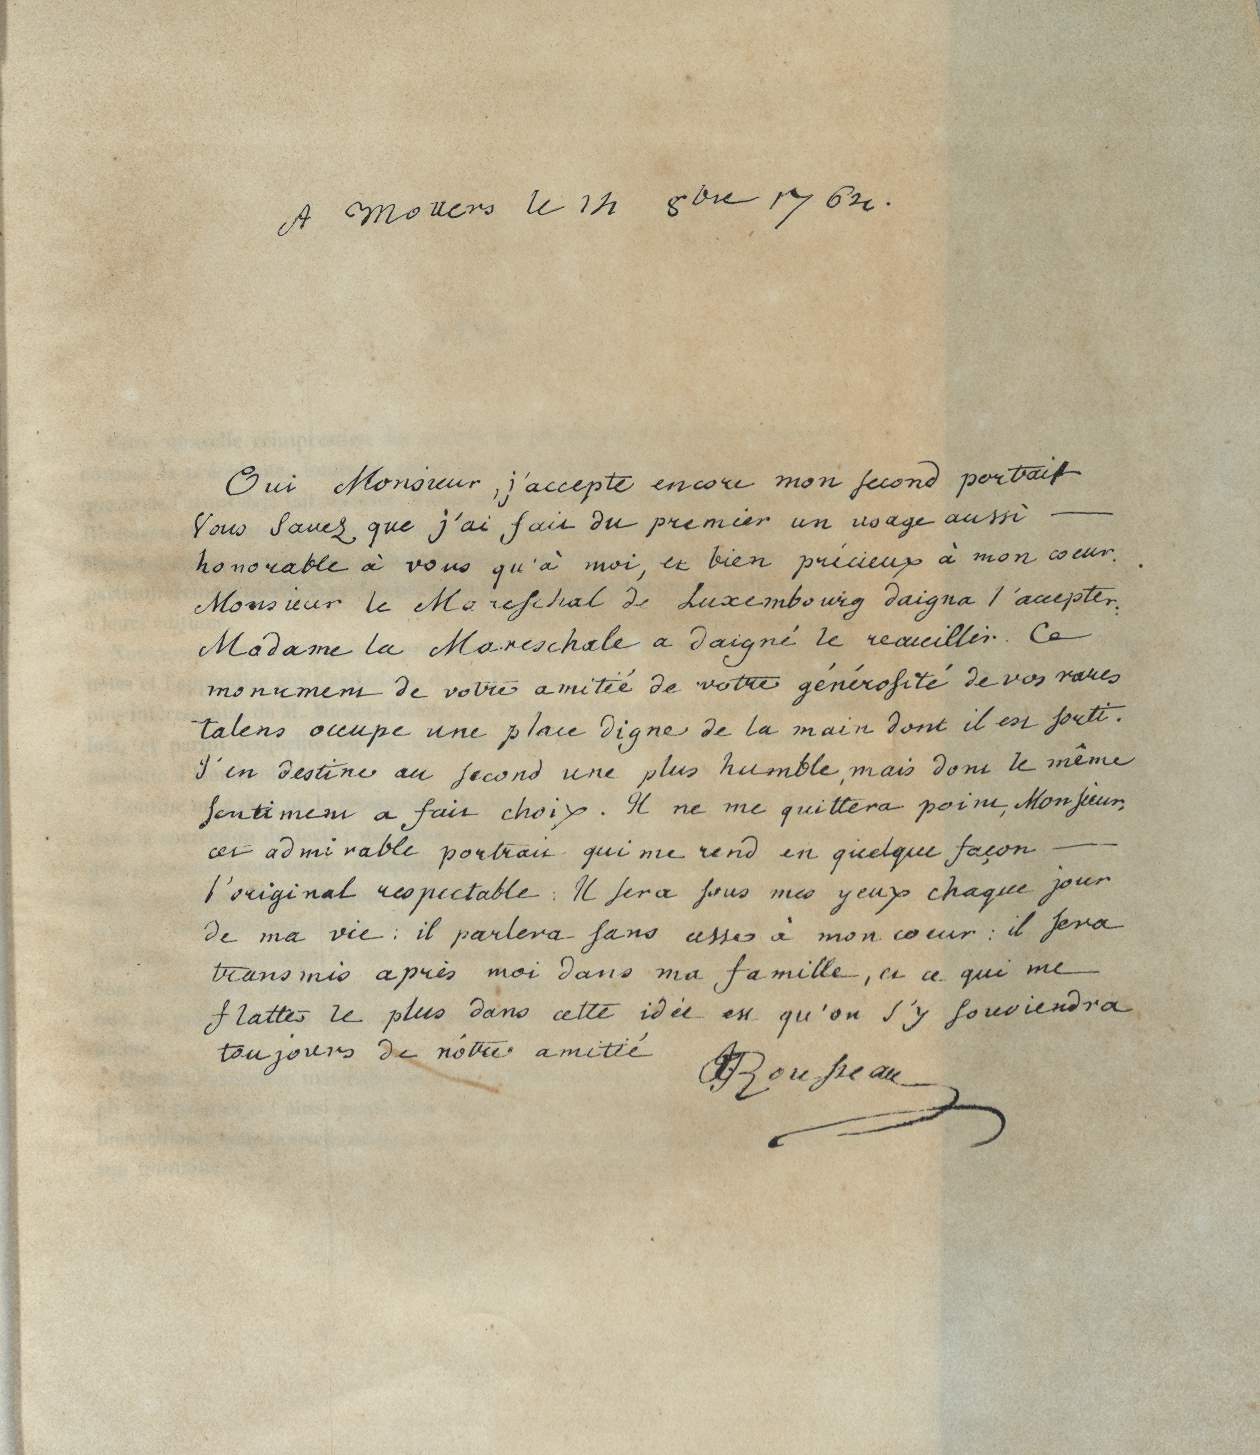 A Motiers le 14 8bre 1764.
Oui Monsieur, j'accepte encore mon second portrait
Vous Savez que j'ai fait du premier un usage aussi —
honorable à vous qu'à moi, et bien précieux à mon coeur.
Monsieur le Mareschal de Luxembourg daigna l'accepter.
Madame la Mareschale a daigné le recueillir. Ce
monument de votre amitié de votre générosité de vos rares
talens occupe une place digne de la main dont il est sorti.
J'en destine au second une plus humble, mais dont le même
sentiment a fait choix. Il ne me quittera point, Monsieur,
cet admirable portrait qui me rend en quelque façon —
l'original respectable: Il sera sous mes yeux chaque jour
de ma vie: il parlera sans cesse à mon coeur: il sera
transmis après moi dans ma famille, et ce qui me
flatte le plus dans cette idée est qu'on s'y souviendra
toujours de nôtre amitié
JJRousseau